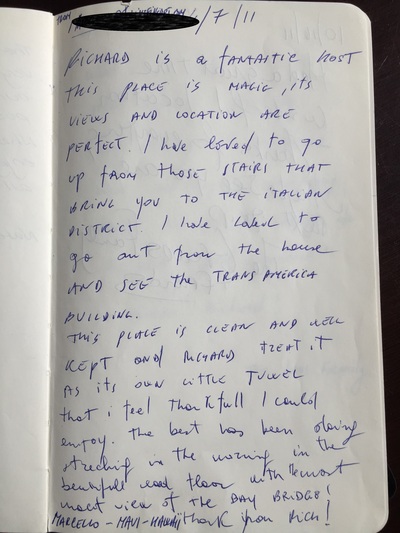 /7/11
RICHARD is a fantastic host
this place is magic, its
views and location are
perfect. I have loved to go
up from those stairs that
bring you to the italian
district. I have loved to
go out from the house
and see the transamerica
building.
this place is clean and well
kept and Richard treat it
as its own little
that i feel thankfull I could
enjoy. the best has been doing
streching in the morning in the
beautifull wood floor with the most
view of the Bay Bridge!
MARCELLO - MAUI - HAWAII thank you Rich!